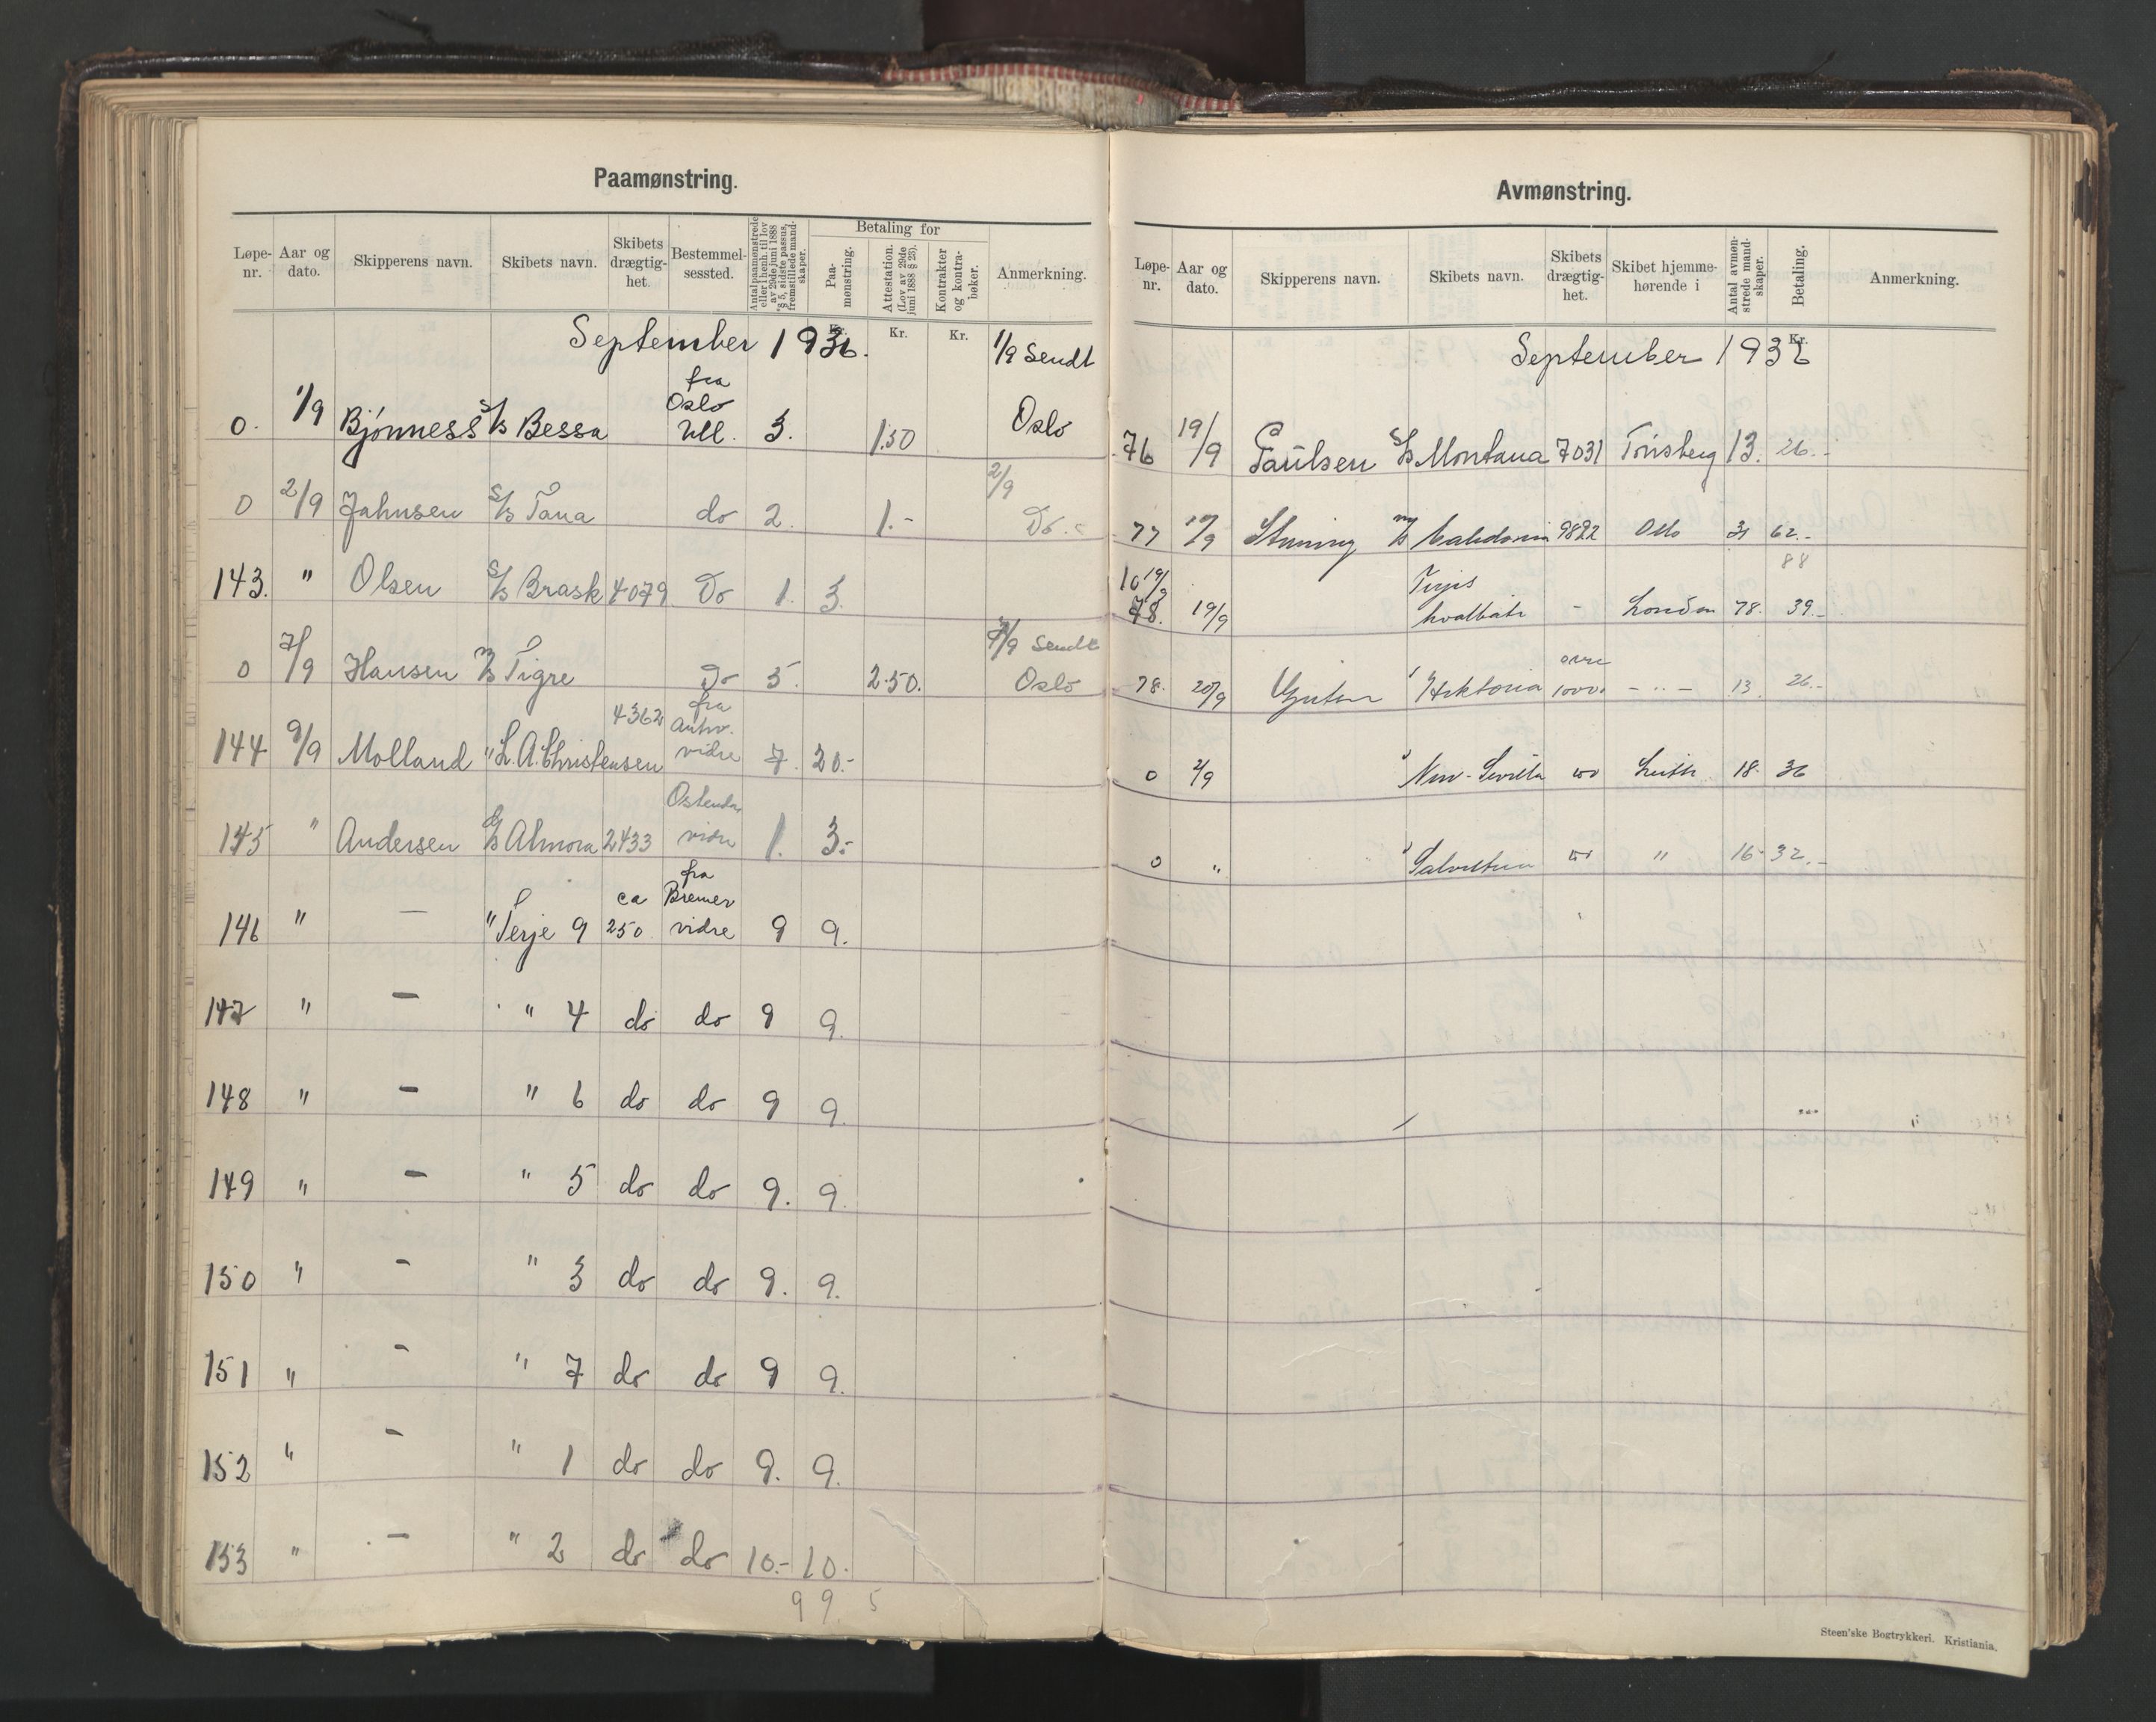 Paamønstring.
Løpe-nr. Aar og dato. Skipperens navn. Skibets navn. Skibets drægtig-het. Bestemmel-sessted. Antal paamønstrede eller i henh. til lov av 29de juni 1888 § 5, sidste passus, fremstillede mand-skaper. Betaling for Paa-mønstring. Attestation. (Lov av 29de juni 1888 § 23). Kontrakter og kontra-bøker. Anmerkning.
Kr. Kr. Kr.
September 1936. 1/9 Sendt
0. 1/9 Bjønness S/S Bessa fra Oslo 3. 1.50 Oslo
0 2/9 Jahnsen S/S Tana do 2. 1.- 2/9 Do.
143. " Olsen S/S Brask 4079 Do 1. 3.
0 7/9 Hansen M/S Tigre Do 5. 2.50. 7/9 Sendt Oslo
144 9/9 Molland " L.A. Christensen 4362 fra Antw. vidre 7. 20.-
145 " Andersen D/S Almora 2433 Ostende vidre 1. 3.-
146 " — " Terje 9 ca 250 fra Bremer vidre 9 9.
147 " — " 4 do do 9 9.
148 " — " 6 do do 9 9.
149 " — " 5 do do 9. 9.
150 " — " 3 do do 9. 9.
151 " — " 7 do do 9 9.
152 " — " 1 do do 9. 9.
153 " — " 2 do do 10.- 10.
99 5
Avmønstring.
Løpe-nr. Aar og dato. Skipperens navn. Skibets navn. Skibets drægtig-het. Skibet hjemme-hørende i Antal avmøn-strede mand-skaper. Betaling. Anmerkning.
Kr.
September 1936
76 19/9 Paulsen S/S Montana 7031 Tønsberg 13. 26.-
77 M/S 9822 Oslo 31 62.-
88
10 19/9
78. 19/9 Terjes hvalbåte - London 78. 39.-
78. 20/9 Hektoria over 1000 - " - 13. 26.-
0 2/9 New-Sevilla Leith 18. 36
0 " Salvestria " 16 32.-
Steen'ske Bogtrykkeri. Kristiania.